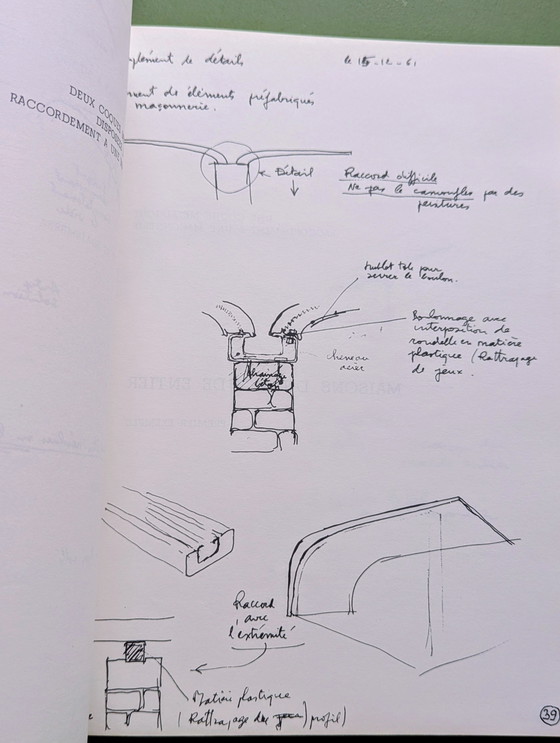 DEUX COQUES
RACCORDEMENT A UN
de détails
le 15-12-61
de éléments préfabriqués
maçonnerie.
Détail
Raccord difficile
Ne pas le camoufler par des
peintures
tole pour
serrer le boulon.
Boulonnage avec
interposition de
rondelle en matière
plastique (Rattrapage
de jeux.
cheneau
acier
Chainage
béton
Raccord
avec
l'extrémité
Matière plastique
(Rattrapage du profil)
39